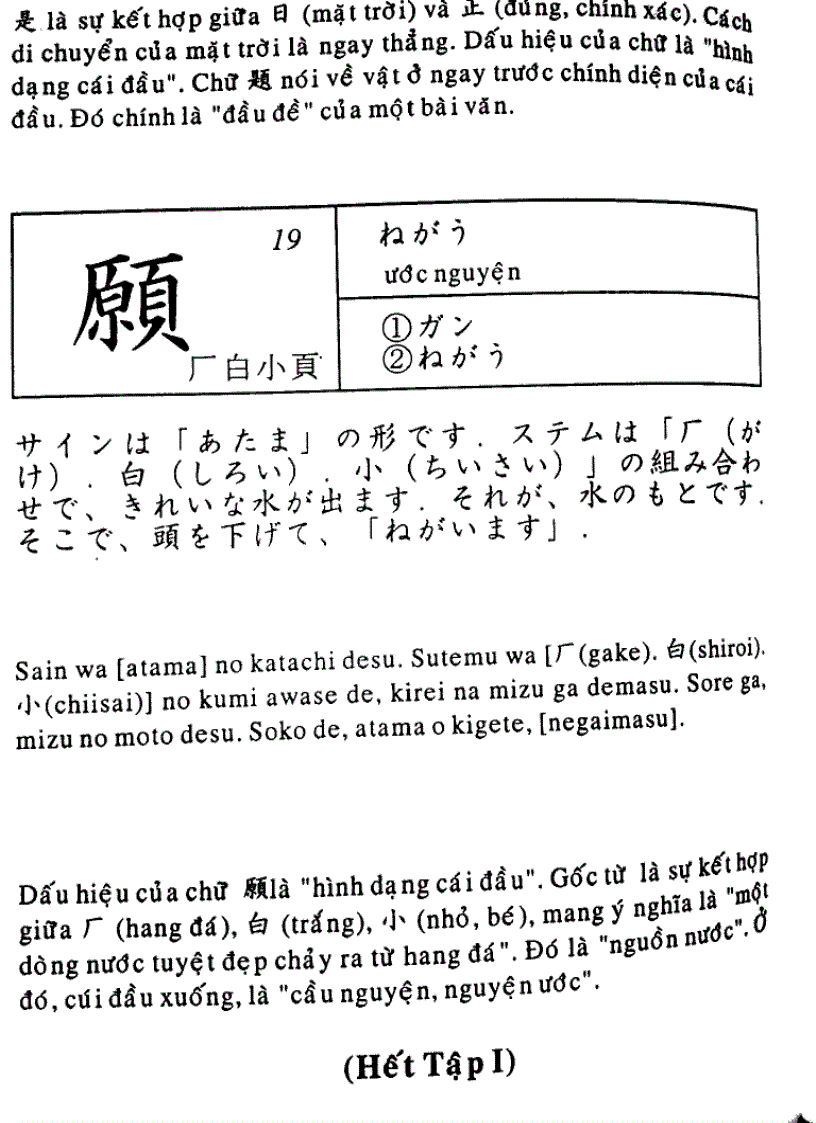 是 là sự kết hợp giữa 日 (mặt trời) và 正 (đúng, chính xác). Cách
di chuyển của mặt trời là ngay thẳng. Dấu hiệu của chữ là "hình
dạng cái đầu". Chữ 題 nói về vật ở ngay trước chính diện của cái
đầu. Đó chính là "đầu đề" của một bài văn.
19
願
厂白小頁
ねがう
ước nguyện
①ガン
②ねがう
サインは「あたま」の形です. ステムは「厂 (が
け) . 白 (しろい) . 小 (ちいさい) 」の組み合わ
せで、きれいな水が出ます. それが、水のもとです.
そこで、頭を下げて、「ねがいます」.
Sain wa [atama] no katachi desu. Sutemu wa [厂(gake). 白(shiroi).
小(chiisai)] no kumi awase de, kirei na mizu ga demasu. Sore ga,
mizu no moto desu. Soko de, atama o kigete, [negaimasu].
Dấu hiệu của chữ 願là "hình dạng cái đầu". Gốc từ là sự kết hợp
giữa 厂 (hang đá), 白 (trắng), 小 (nhỏ, bé), mang ý nghĩa là "một
dòng nước tuyệt đẹp chảy ra từ hang đá". Đó là "nguồn nước". Ở
đó, cúi đầu xuống, là "cầu nguyện, nguyện ước".
(Hết Tập I)